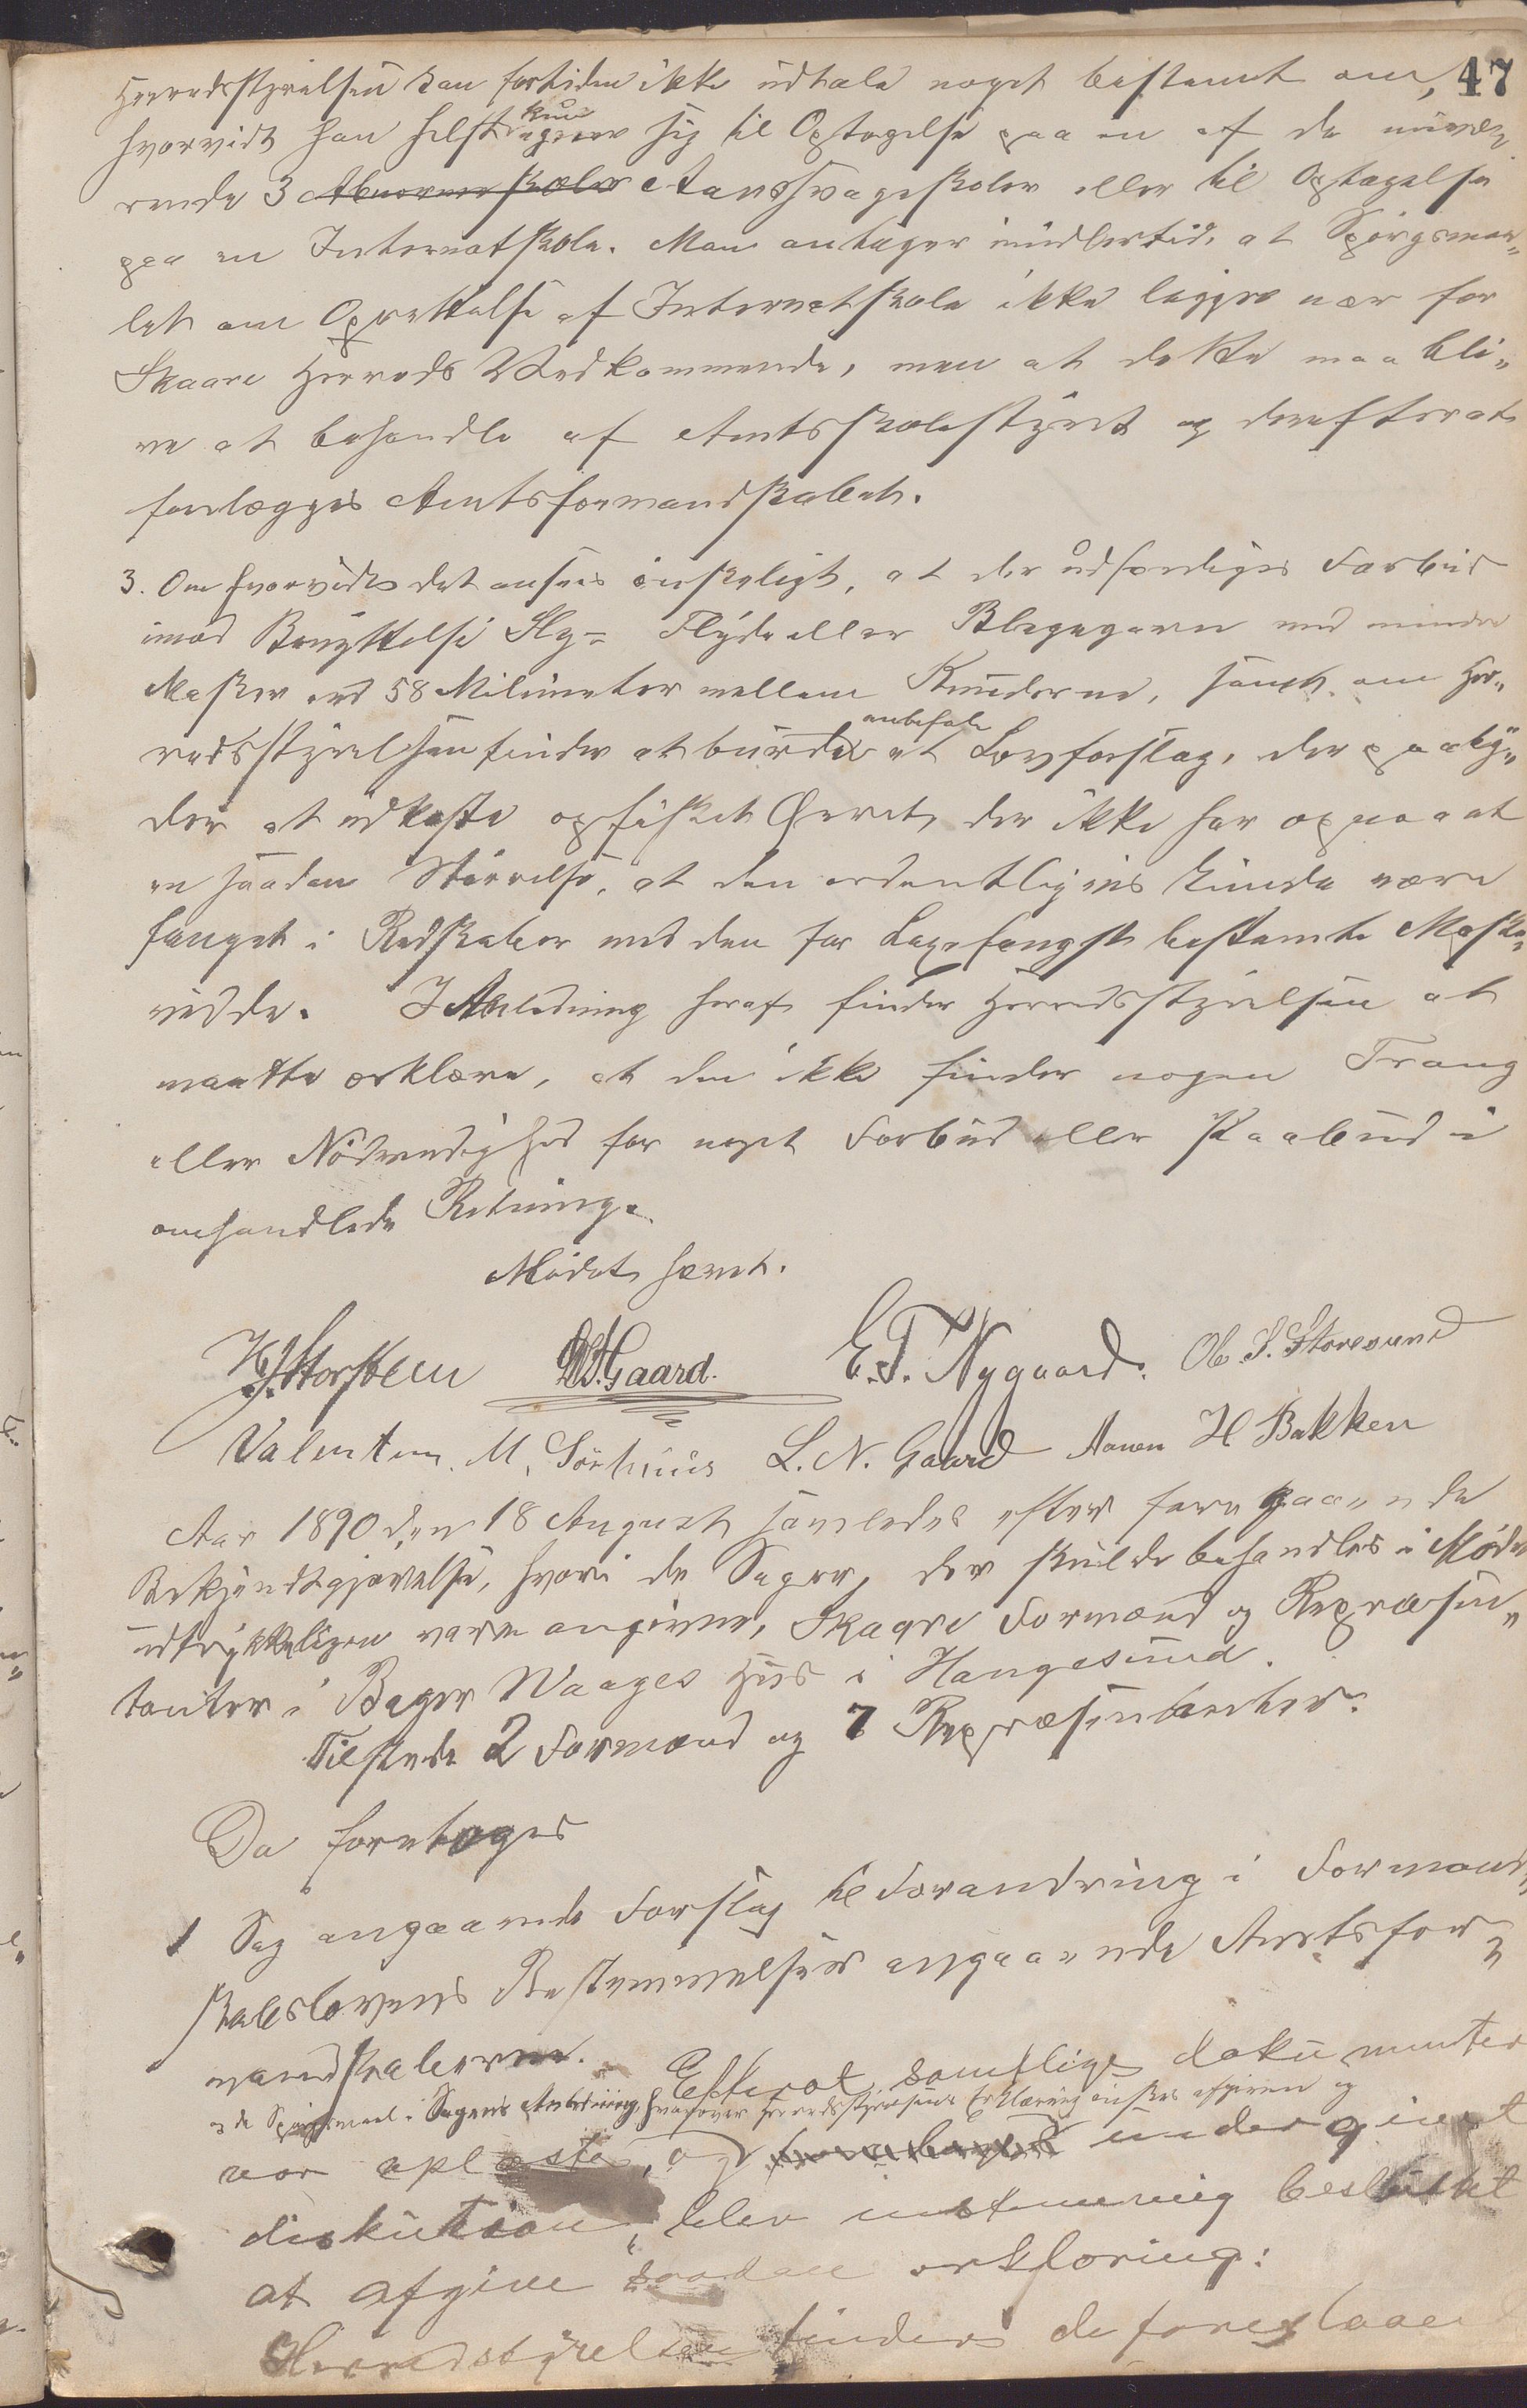 47
Herredsstyrelsen kan fortiden ikke udtale noget bestemt om,
hvorvidt han helst kun egner sig til Optagelse paa en af de nuvæ-
rende 3 Abnormeskoler Aandssvageskoler eller til Optagelse
paa en Internatskole. Man antager imidlertid, at Spörgsmaa„
let om Oprettelse af Internatskole ikke ligger nær for
Skaare Herreds Vedkommende, men at dette maa bli„
ve at behandle af Amtsskolestyret og derefter at
forelægges Amtsformandskabet.
3. Om hvorvidt det ansees önskeligt, at der udfærdiges Forbud
imod Benyttelse Sky- Flyde eller Blegegarn med mindre
Masker end 58 Milimeter mellem Knuderne, samt om Her„
redsstyrelsen finder at burde anbefale et Lovforslag, der paaby„
der at udkaste opfisket Örret, der ikke har opnaaet
en saadan Störrelse, at den ordentligvis kunde være
fanget i Redskaber med den for Laxefangst bestemte Maske„
vidde. I Anledning heraf finder Herredsstyrelsen at
maatte erklære, at den ikke finder nogen Trang
eller Nödvendighed for noget Forbud eller Paabud i
omhandlede Retning.
Mödet hævet.
H J Storsteen O S. Gaard. E. T. Nygaard. Ole S. Storesund
Valentin. M. Sörhuus L. N. Gaard Aanen H Bakken
Aar 1890 den 18 August samledes efter foregaaende
Bekjendtgjörelse, hvori de Sager, der skulde behandles i Möde
udtrykkeligen vare angivne, Skaare Formænd og Repræsen„
tanter i Bager Waages Hus i Haugesund.
Tilstede 2 Formænd og 7 Repræsentanter.
Da foretoges
1 Sag angaaende Forslag til Forandring i Formand„
skabslovens Bestemmelser angaaende Amtsfor„
mandskaberne. Efterat samtlige dokumenter
de Spörgsmaal i Sagens Anledning, hvorover Herredsstyrelsens Erklæring önskes afgiven og
var oplæste, og undergivet
diskution, blev enstemmig besluttet
at afgive saadan erklæring:
Herredstyrelsen finder de foreslaaed